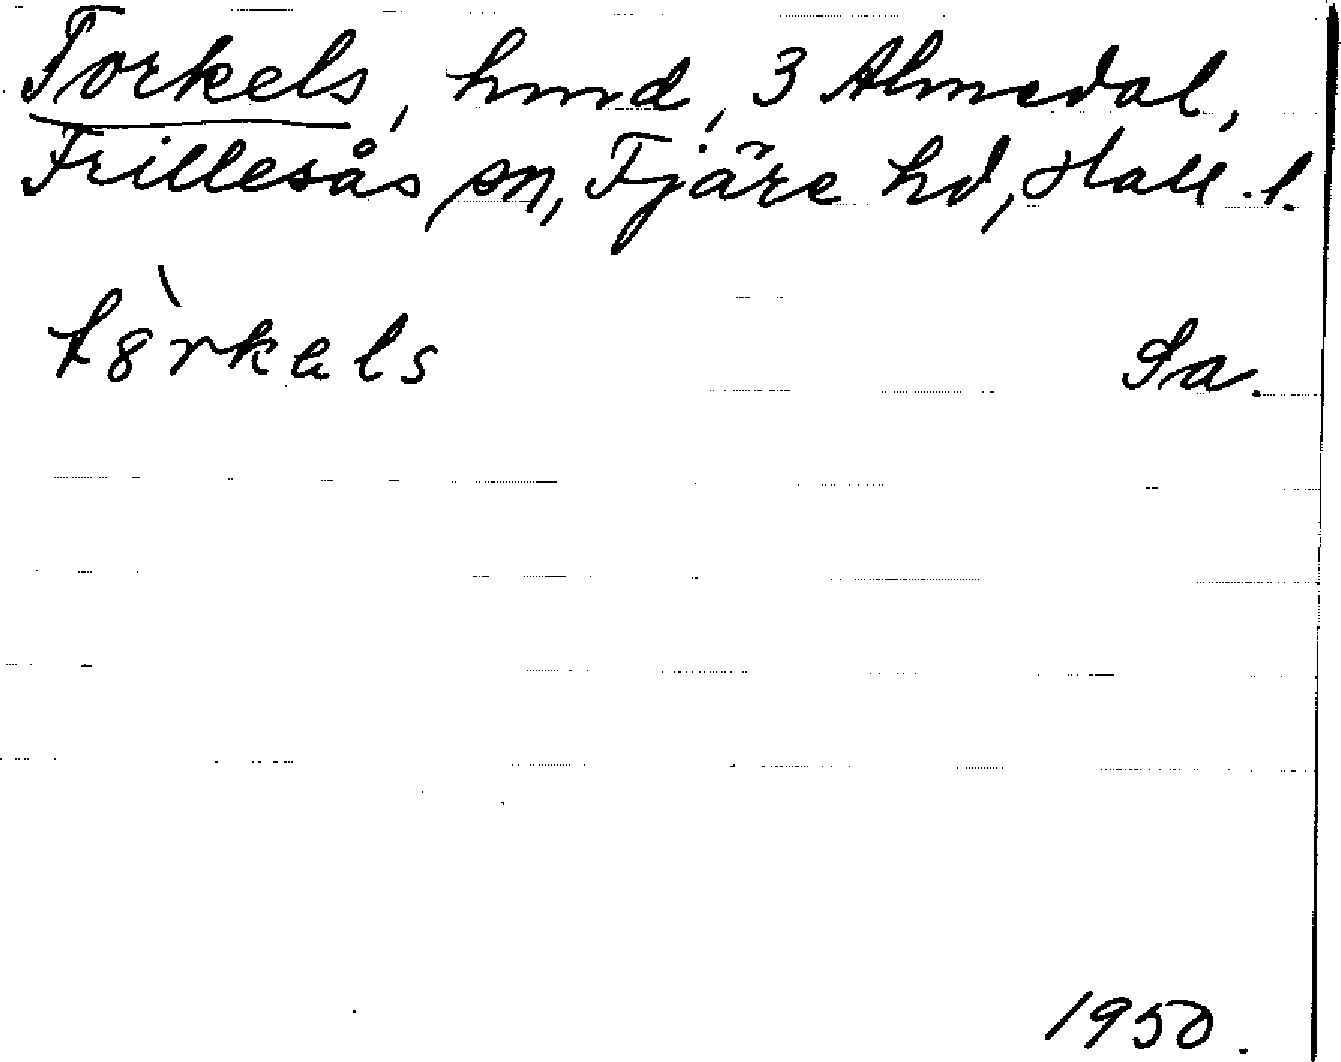 Torkels, hmd, 3 Almedal,
Frillesås sn, Fjäre hd, Hall. l.
t8̀rkals Sa.
1950.